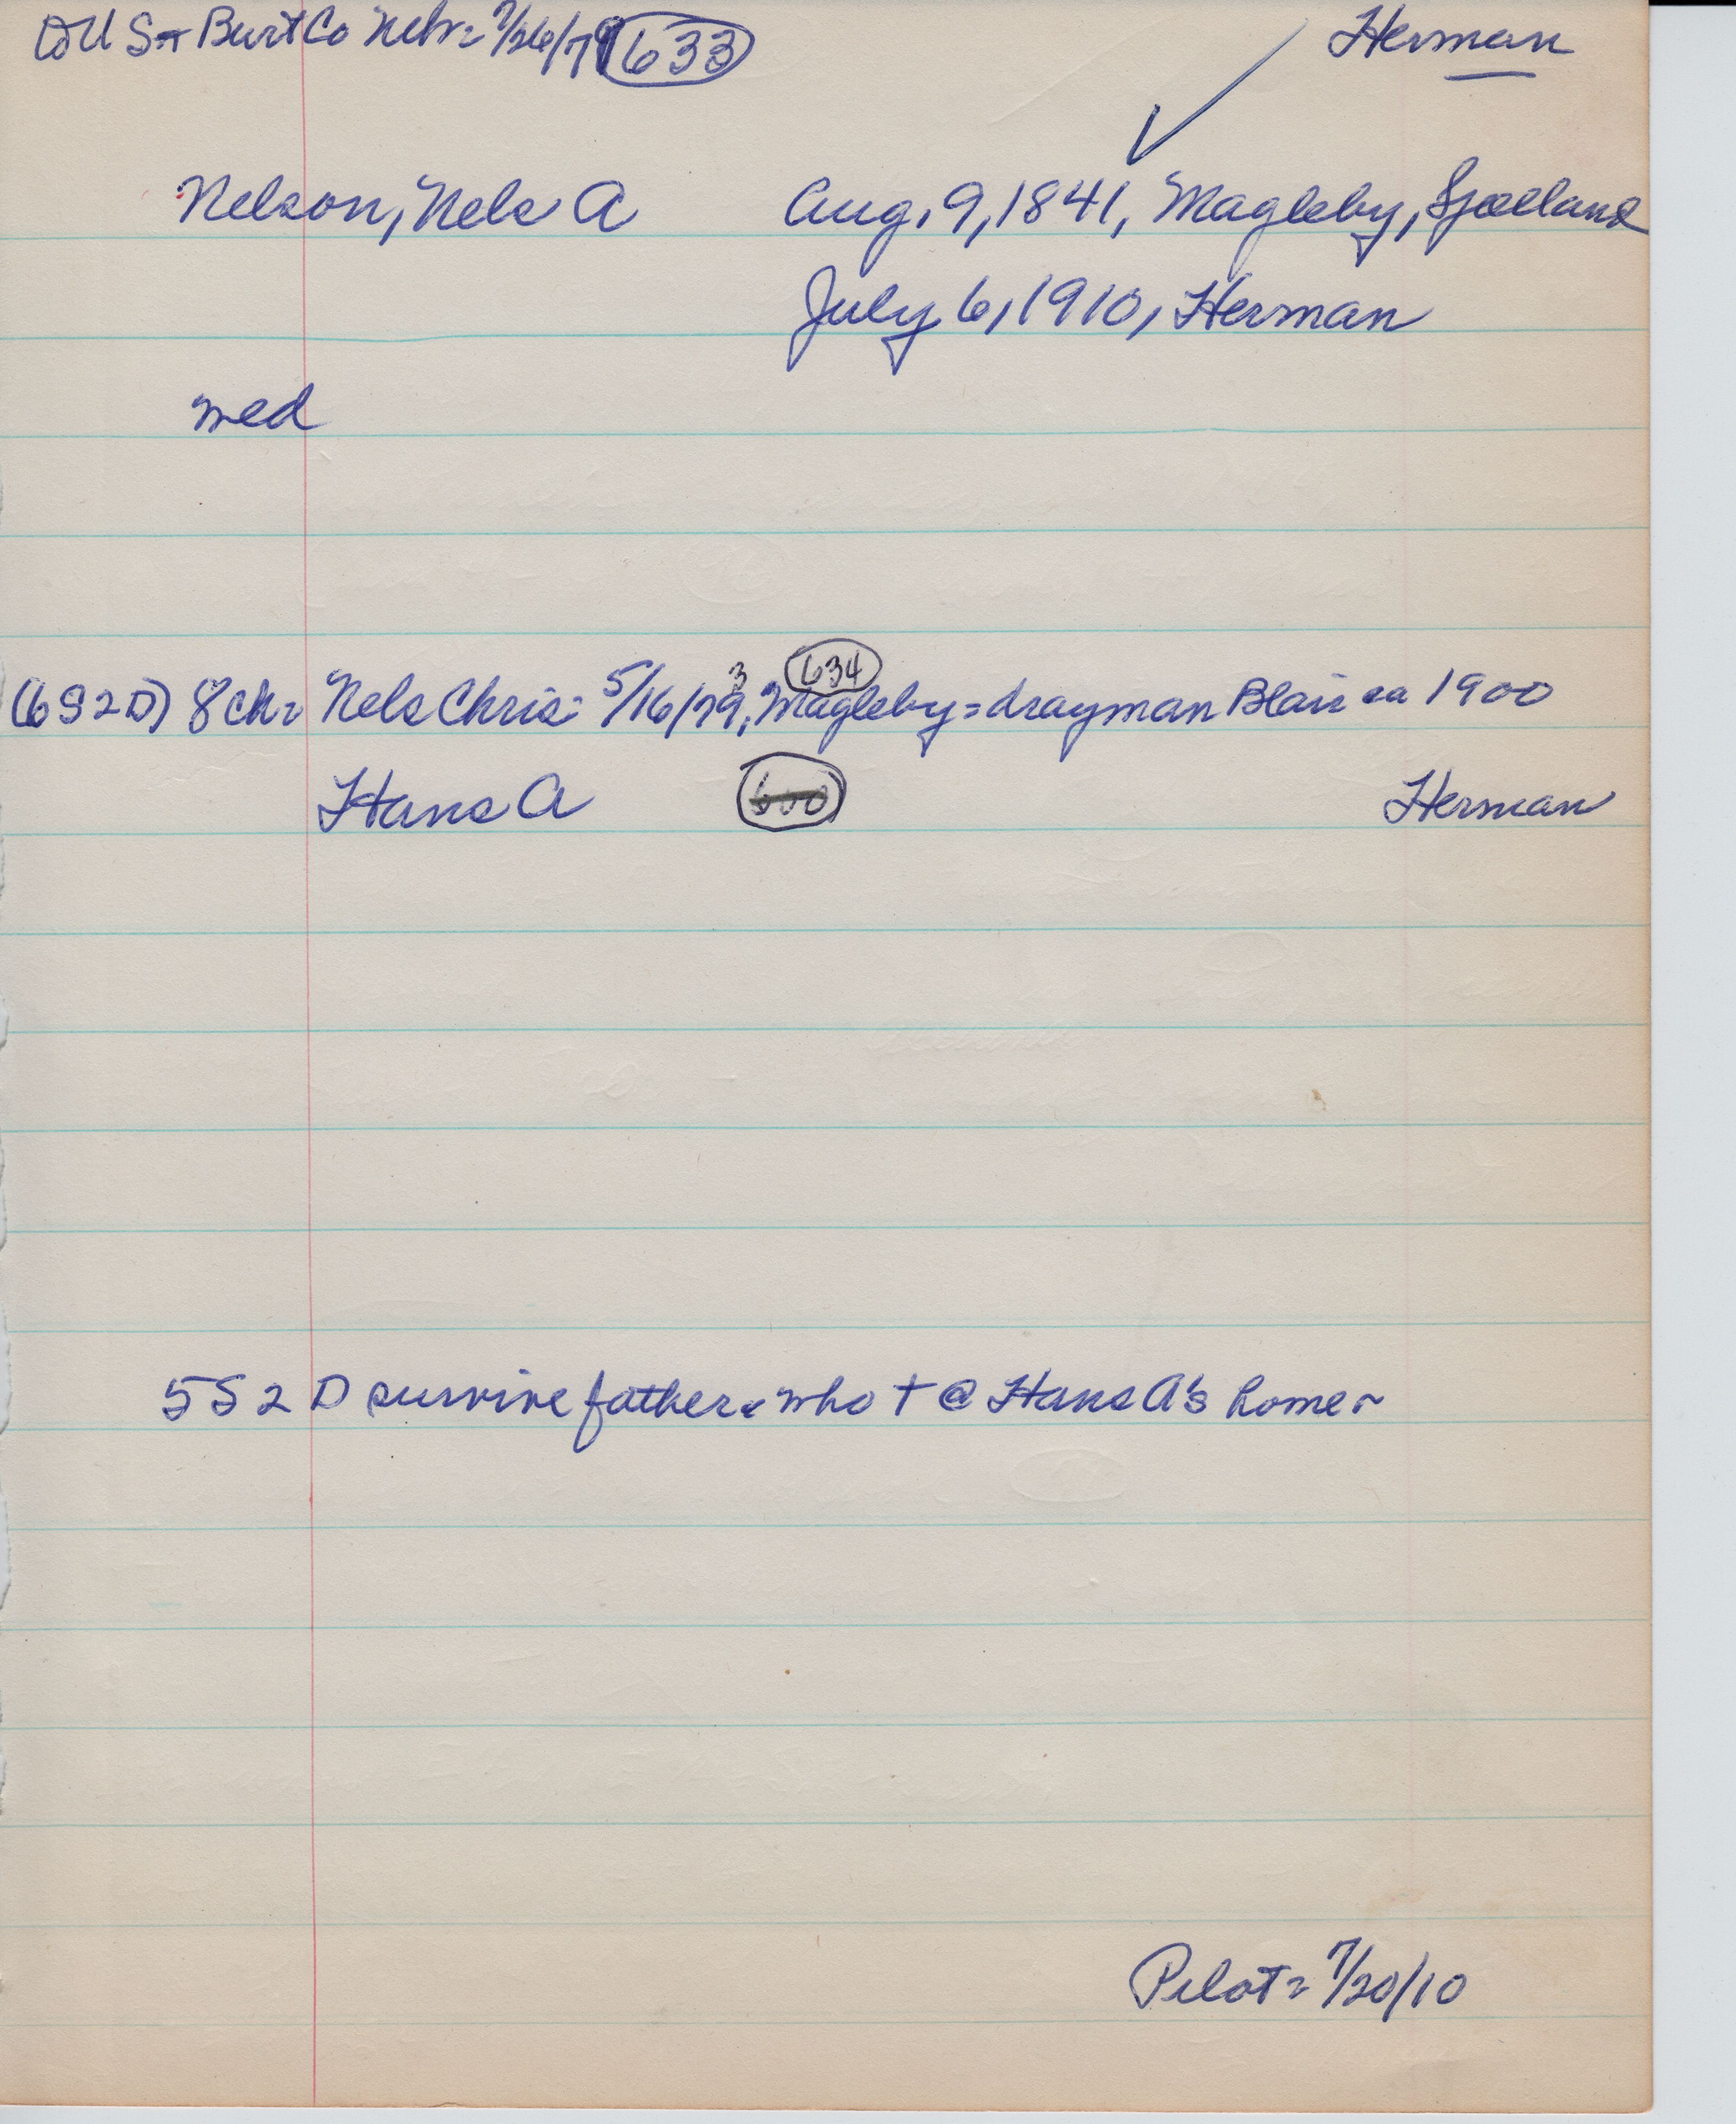 US Burt Co Nebr = 7/26/79 633 Herman
Nelson, Nels A Aug. 9, 1841, Magleby, Sjælland
July 6, 1910, Herman
med
3 634
(6S 2D) 8 ch = Nels Chris: 5/16/79, Magleby = drayman Blair ca 1900
Hans A 600 Herman
5S 2D survive father who † @ Hans A's home
Pilot = 7/20/10